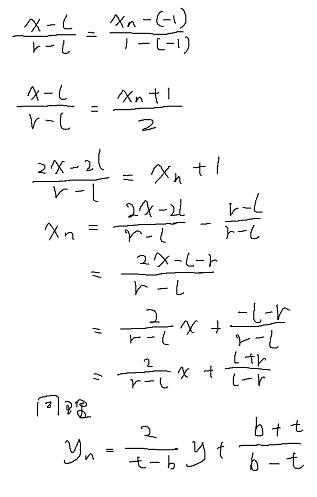 (x-l)/(r-l) = (xₙ-(-1))/(1-(-1))
(x-l)/(r-l) = (xₙ+1)/2
(2x-2l)/(r-l) = xₙ+1
xₙ = (2x-2l)/(r-l) - (r-l)/(r-l)
= (2x-l-r)/(r-l)
= 2/(r-l) x + (-l-r)/(r-l)
= 2/(r-l) x + (l+r)/(l-r)
同理
yₙ = 2/(t-b) y + (b+t)/(b-t)